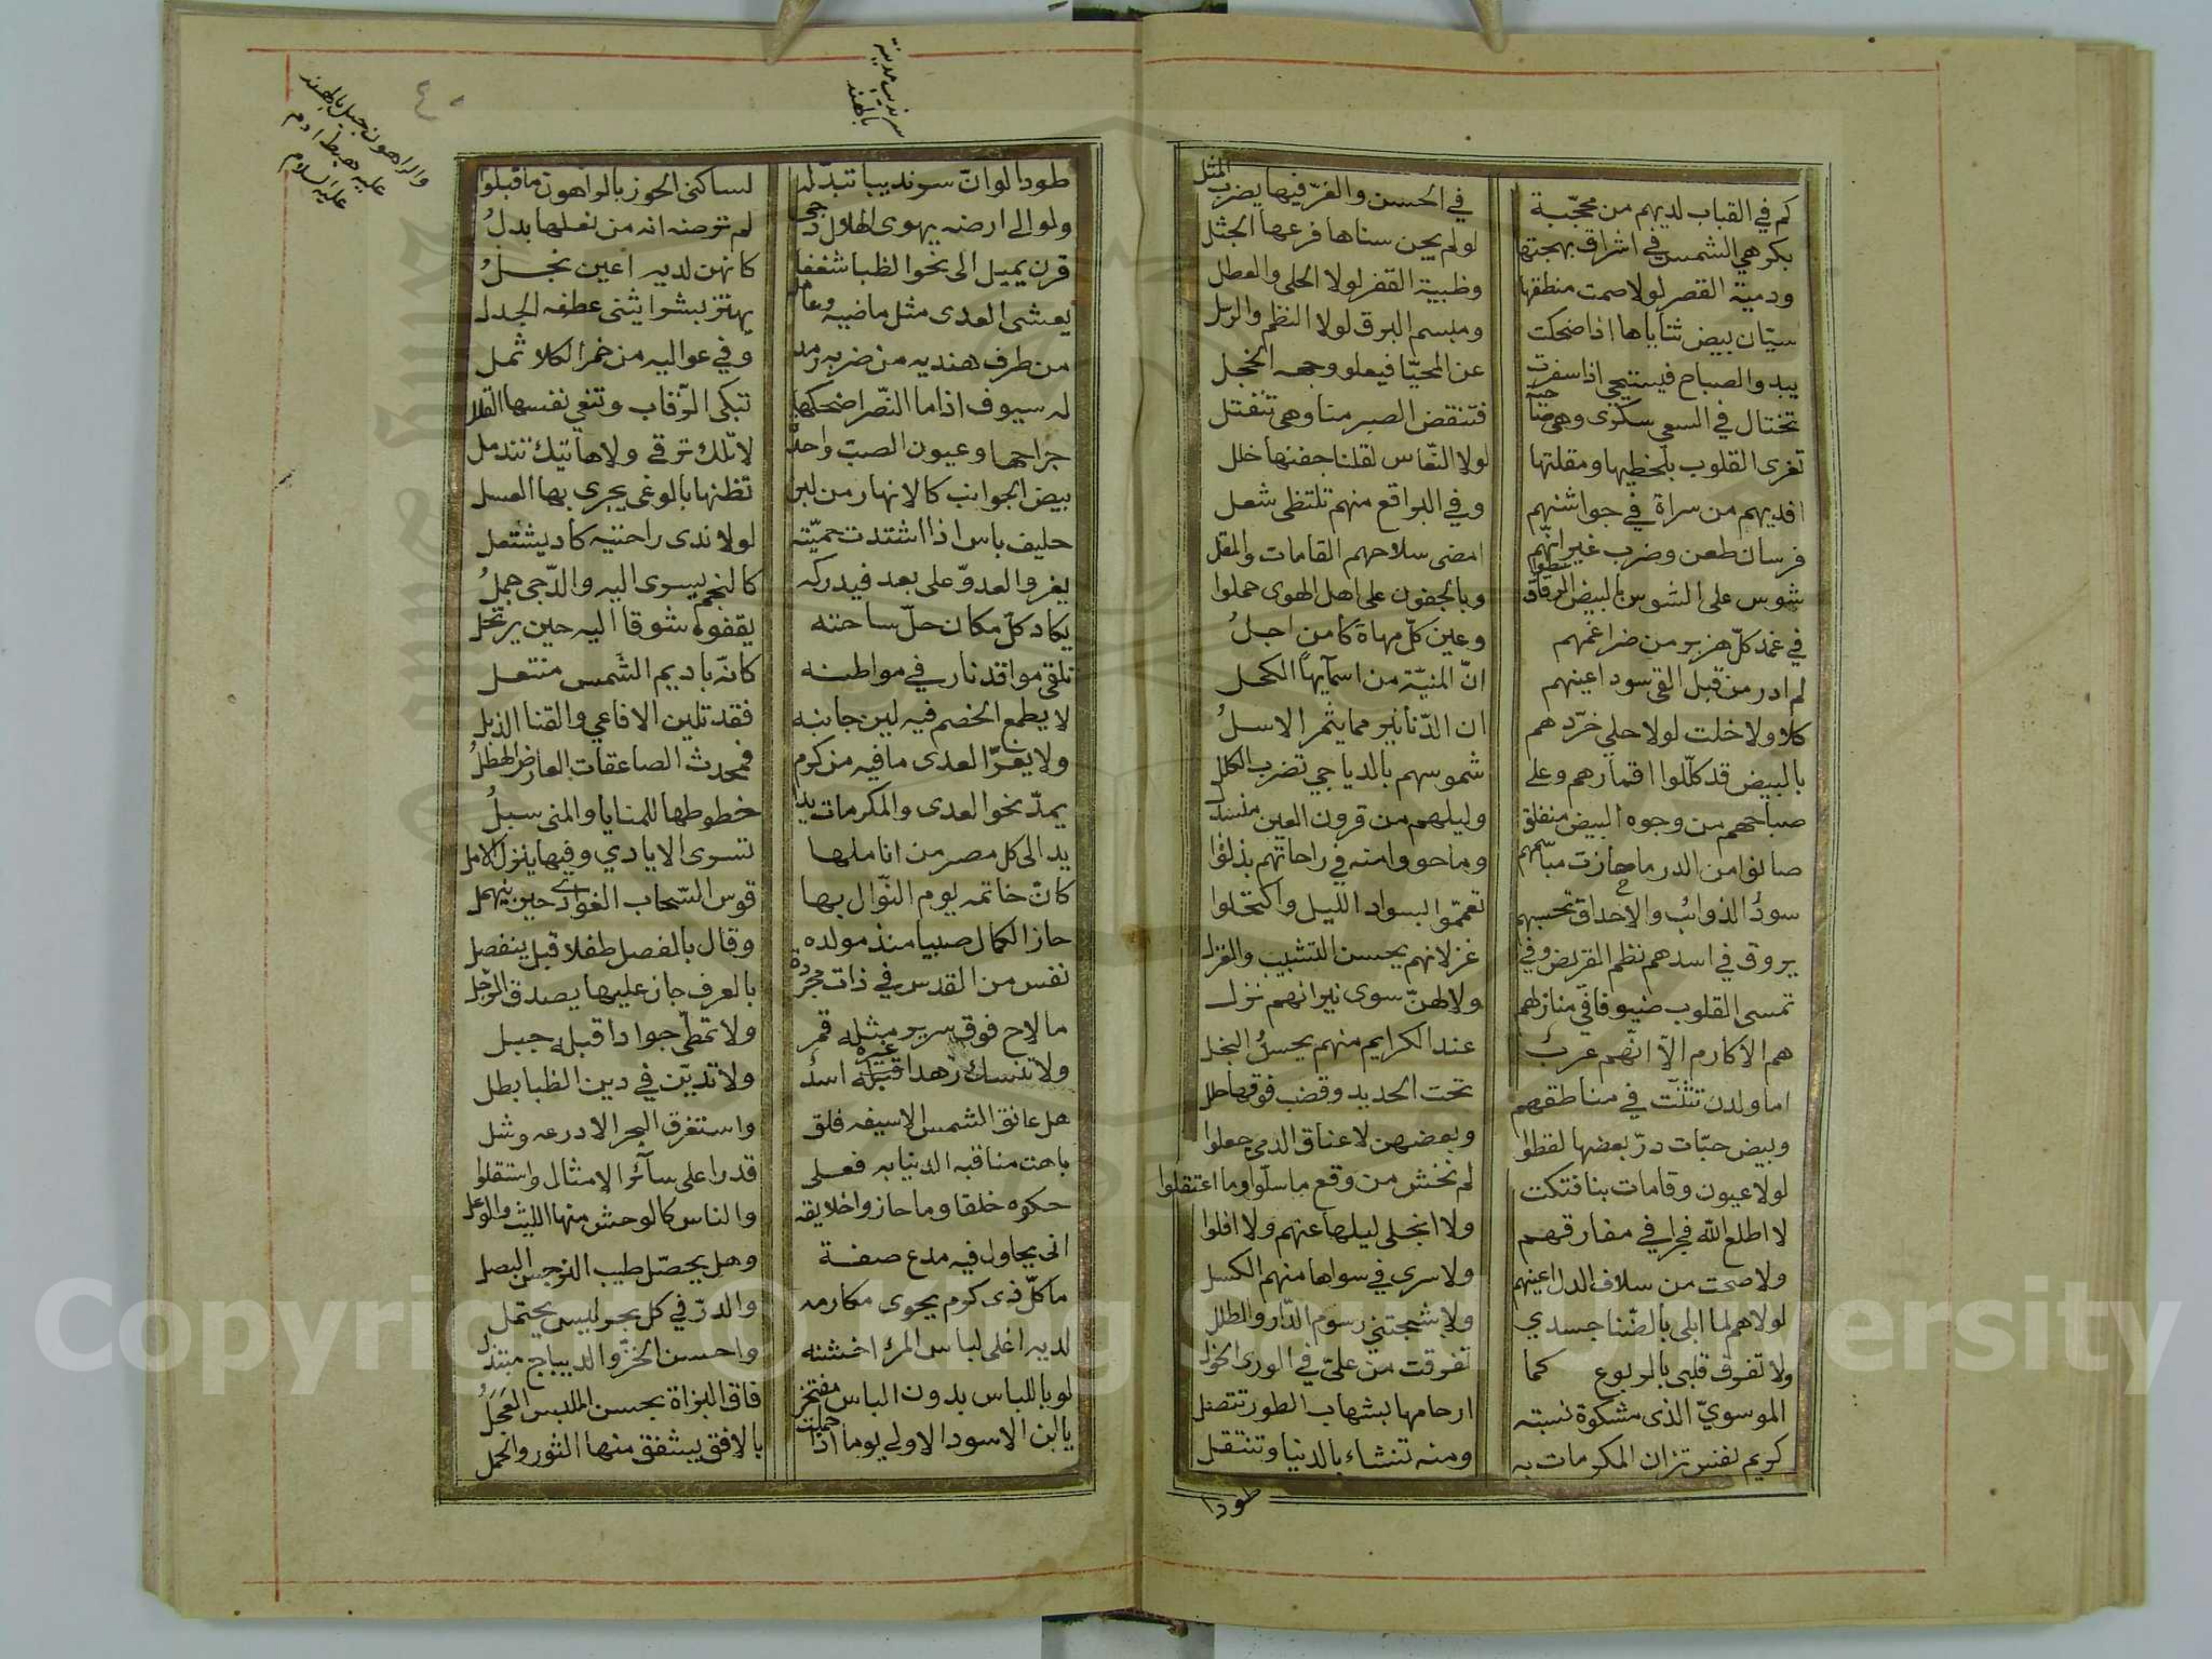 كم في القباب لديهم من محجّبة في الحسن والغرّ فيها يضرب المثل
بكر هي الشمس في اشراق بهجتها لو لم يجن سناها فرعها الجثل
ودمية القصر لولا صمت منطقها وظبية القفر لولا الحلي والعطل
سيّان بيض ثناياها اذا ضحكت ومبسم البرق لولا النظم والرتل
يبدو الصباح فيستحي اذا سفرت عن المحيّا فيعلو وجهه الخجل
تختال في السعي سكرى وهي صاحية فتنقض الصبر منا وهي تنفتل
تغرى القلوب بلحظيها ومقلتها لولا النعّاس لقلنا جفنها خلل
افديهم من سراة في جواشنهم وفي البراقع منهم تلتظى شعل
فرسان طعن وضرب غير انهّم امضى سلاحهم القامات والمقل
شوس على الشوس بالبيض الرقاق سطوا وبالجفون على اهل الهوى حملوا
في غمد كلّ هزبر من ضراغمهم وعين كلّ مهاة كامن اجلُ
لم ادر من قبل القى سود اعينهم انّ المنيّة من اسمآيها الكحل
كلا ولا خلت لولا حلي خرّدهم ان الدّنانير مما يثمر الاسلُ
بالبيض قد كلّلوا اقمارهم وعلى شموسهم بالدياجي تضرب الكلل
صباحهم من وجوه البيض منفلق وليلهم من قرون العين منسدل
صانوا من الدر ما حازت مباسمهم وما حووا منه في راحاتهم بذلوا
سودُ الذوائب والاحداق تحسبهم تعممّوا بسواد الليل واكتحلوا
يروق في اسدهم نظم القريض وفي غزلانهم يحسن التشبيب والغزل
تمسى القلوب ضيوفا في منازلهم ولا لهنّ سوى نيرانهم نزل
هم الاكارم الاّ انهّم عربٌ عند الكرايم منهم يحسنُ البخل
اما ولدن تثنّت في مناطقهم تحت الحديد وقضب فوقها حلل
وبيض حبّات درّ بعضها لفظوا وبعضهن لاعناق الدمى جعلوا
لولا عيون وقامات بنا فتكت لم نخش من وقع ما سلّوا وما اعتقلوا
لا اطلع الله فجرا في مفارقهم ولا انجلى ليلها عنهم ولا افلوا
ولا صحت من سلاف الدل اعينهم ولا سرى في سواها منهم الكسل
لولا هم لما ابلى بالضّنا جسدي ولا شجتني رسوم الدّار والطلل
ولا تفرق قلبى بالربوع كما تفرقت من علىّ في الورى الخول
الموسويّ الذى مشكوة نسبته ارحامها بشهاب الطور تتصل
كريم نفس تزان المكرمات به ومنه تنشاء بالدنيا وتنتقل
طودا
سرنديب مدينة بالهند
والراهون جبل بالهند
عليه هبط ادم
عليه السلام
٤٠
طودا لو انّ سرنديبا تبدّله لساكنى الحوز بالراهون ما قبلوا
ولو الى ارضه يهوى الهلال دجى لم ترضه انه من نعلها بدلُ
قرن يميل الى نحو الظبا شغفا كانهن لديه اعين نجلُ
يغشى العدى مثل ماضيه وعامله يهتز بشرا يثنى عطفه الجدل
من طرف هنديه من ضربه رمد وفي عواليه من خمر الكلا ثمل
له سيوف اذا ما النصّر اضحكها تبكى الرّقاب وتنعى نفسها القلل
جراحها وعيون الصبّ واحدة لا تلك ترقى ولا هاتيك تندمل
بيض الجوانب كالانهار من لبن تظنها بالوغى يجرى بها العسل
حليف باس اذا اشتدت حميّته لولا ندى راحتيه كاد يشتعل
يغزو العدوّ على بعد فيدركه كالنجم يسرى اليه والدّجى جملُ
يكاد كلّ مكان حلّ ساحته يقفوه شوقا اليه حين يرتحل
تلقى مواقد نار في مواطنه كانّه باديم الشّمس منتعل
لا يطمع الخصم فيه لين جانبه فقد تلين الافاعي والقنا الذبل
ولا يغرّ العدى ما فيه من كرم فمحدث الصاعقات العارض الهطلُ
يمدّ نحو العدى والمكرمات يدا خطوطها للمنايا والمنى سبلُ
يد الى كل مصر من اناملها تسرى الايادي وفيها ينزل الامل
كانّ خاتمه يوم النوّال بها قوس السّحاب الغوادي حين ينهمل
حاز الكمال صبيا منذ مولده وقال بالفصل طفلا قبل ينفصل
نفس من القدس في ذات مجردة بالعرف جاز عليها يصدق الرّجل
ما لاح فوق سرير مثله قمر ولا تمطّى جوادا قبله جبل
ولا تنسك زهدا غيره اسدُ ولا تديّن في دين الظبا بطل
هل عانق الشمس الا سيفه فلق واستغرق البحر الا درعه وشل
باهت مناقبه الدنيا به فعلى قدرا على سآئر الامثال واستفلوا
حكوه خلقا وما حازوا خلايقه والناس كالوحش منها الليث والوعل
انى يحاول فيه مدع صفة وهل يحصّل طيب النرجس البصل
ما كلّ ذى كرم يحوى مكارمه والدرّ في كل بحر ليس يحتمل
لديه اغلى لباس المرئ اخشنه واحسن الخزّ والديباج مبتذل
لو باللباس بدون الباس مفتخر فاق البزاة بحسن الملبس الحجلُ
يا ابن الاسود الاولى يوما اذا حملت بالافق يشفق منها الثور والحمل